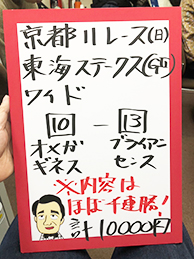 京都11レース(日)
東海ステークス(GⅢ)
ワイド
10 - 13
オメガギネス ブライアンセンス
※内容は
ほぼ千連勝!
計10000円